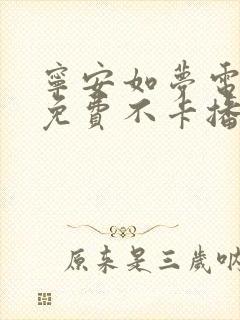 寧安如夢電
免費不卡播
原來是三歲吶